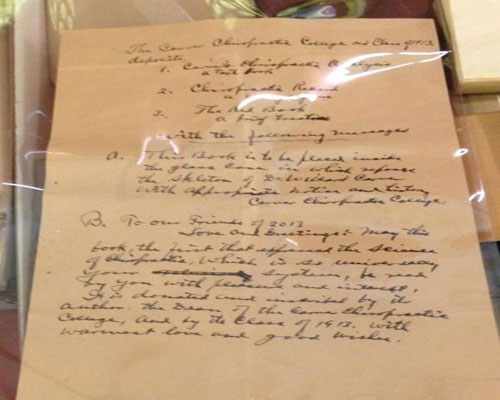 The Carver Chiropractic College and Class of 1913
deposits
1. Carver's Chiropractic Analysis
a text book
2. Chiropractic Record
a
3. The Red Book
a brief treatise
With the following messages
A. This Book is to be placed inside
the glass case in which repose
the skeleton of Dr. Willard Carver
with appropriate notice and history
Carver Chiropractic College
B. To our Friends of 2013
Love and Greetings: May this
book, the first that the science
of Chiropractic, which is so universally
your system, be read
by you with pleasure and interest,
It is donated and inscribed by its
author, the Dean of the Carver Chiropractic
College, and by the Class of 1913. With
warmest love and good wishes.